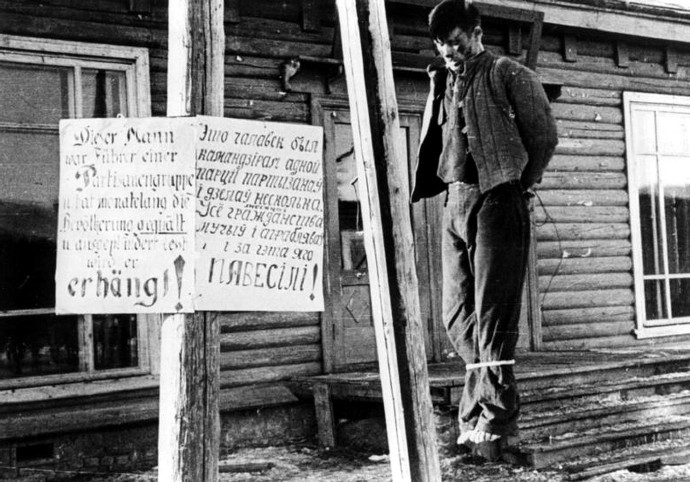 Dieser Mann
war Führer einer
Partisanengruppe
u. hat monatelang die
Bevölkerung gequält
u. ausgeplündert. Jest
wird er
erhängt!
Это чалавек был
камандзірам адной
парціі партизаноў
і дзелаў несколька
Усё гражданства
мучыў і аграбляваў
і за гэта яго
ПАВЕСІЛІ!